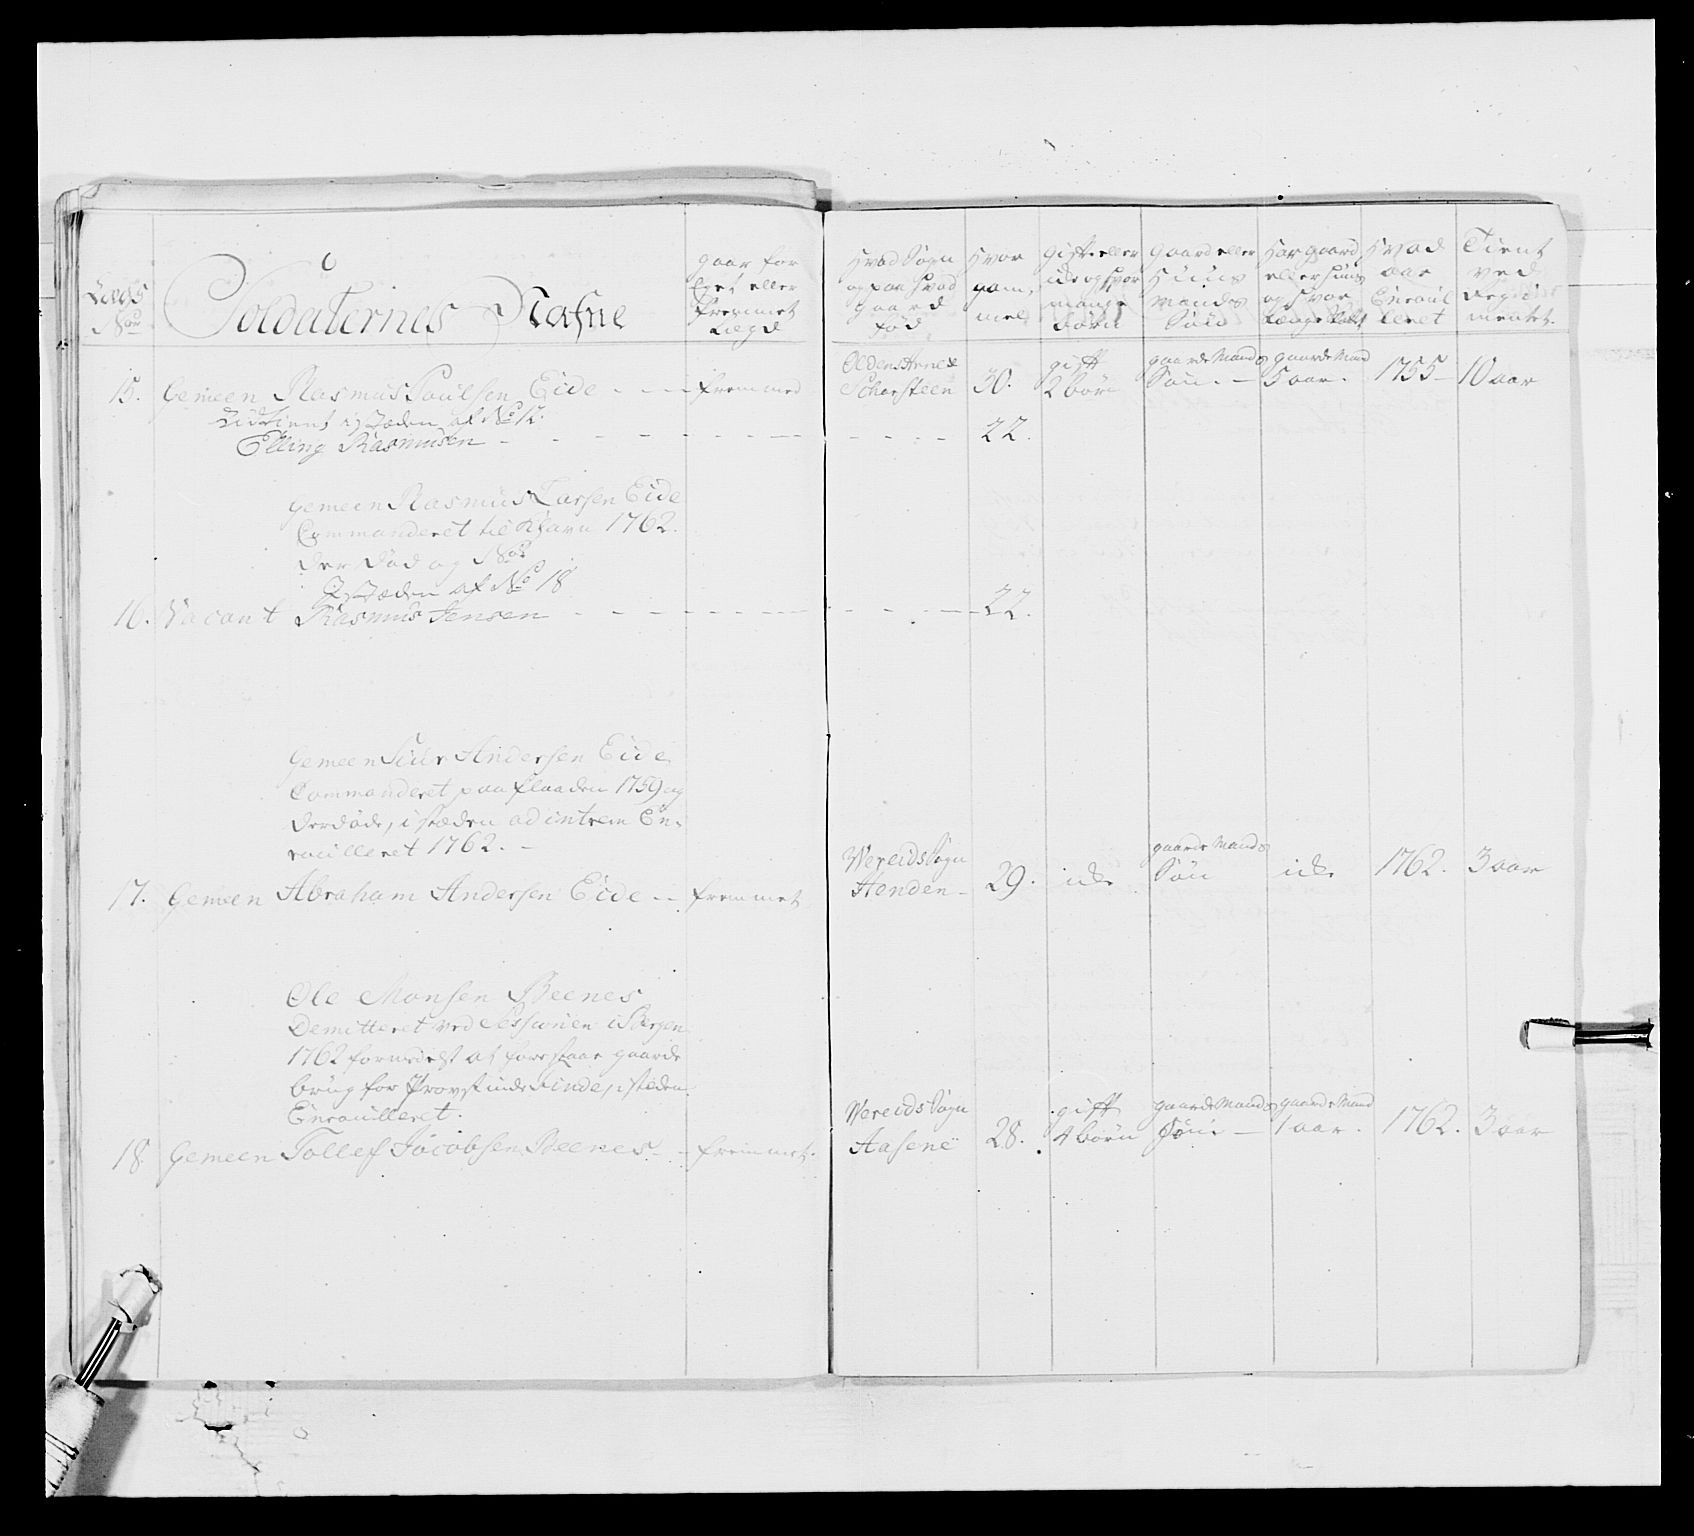 Lægs
No
Soldaternes Nafne
gaar for
Eget eller
fremmet
Lægd
Hvad Sogn
og paa hvad
gaard
fød
Hvor
gam,
mel
Gift eller
ide og hvor
mange
børn
Gaard eller
Huus
mandes
Søn
Har gaard
eller Huus
og hvor
længe
Hvad
aar
Enroul
leret
Tient
ved
Regi
mentet.
15. Gemeen Rasmus Poulsen Eide - - - fremmed
Oldens Annex
Schorsteen 30. gift 2 børn gaardeMands Søn. — gaardeMand 5 aar. 1755 — 10 aar
Udtient i stæden af No 12.
Elling Rasmusen - - - - 22.
Gemeen Rasmus Larsen Eide
Commanderet til Khavn 1762.
der død og
I stæden af No 18
16. Vacant Rasmus Jensen - - - - 22.
Gemeen Siur Andersen Eide
Commanderet paa flaaden 1759 og
der døde, i stæden ad intrem En-
roulleret 1762. -
17. Gemeen Abraham Andersen Eide - - fremmet
Wereids Sogn
Henden - 29. ide gaardeMands Søn ide 1762. 3 aar
Ole Monsen Beenes
Demitteret ved Sessionen i Bergen
1762 formedelst at forestaae gaards
brug for Provstinde inde, i stæden
Enroulleret.
18. Gemeen Tollef Jacobsen Beenes - - fremmet.
Wereids Sogn
Aasene 28. gift 4 børn gaardeMands Søn — gaardeMand 1 aar. 1762. 3 aar